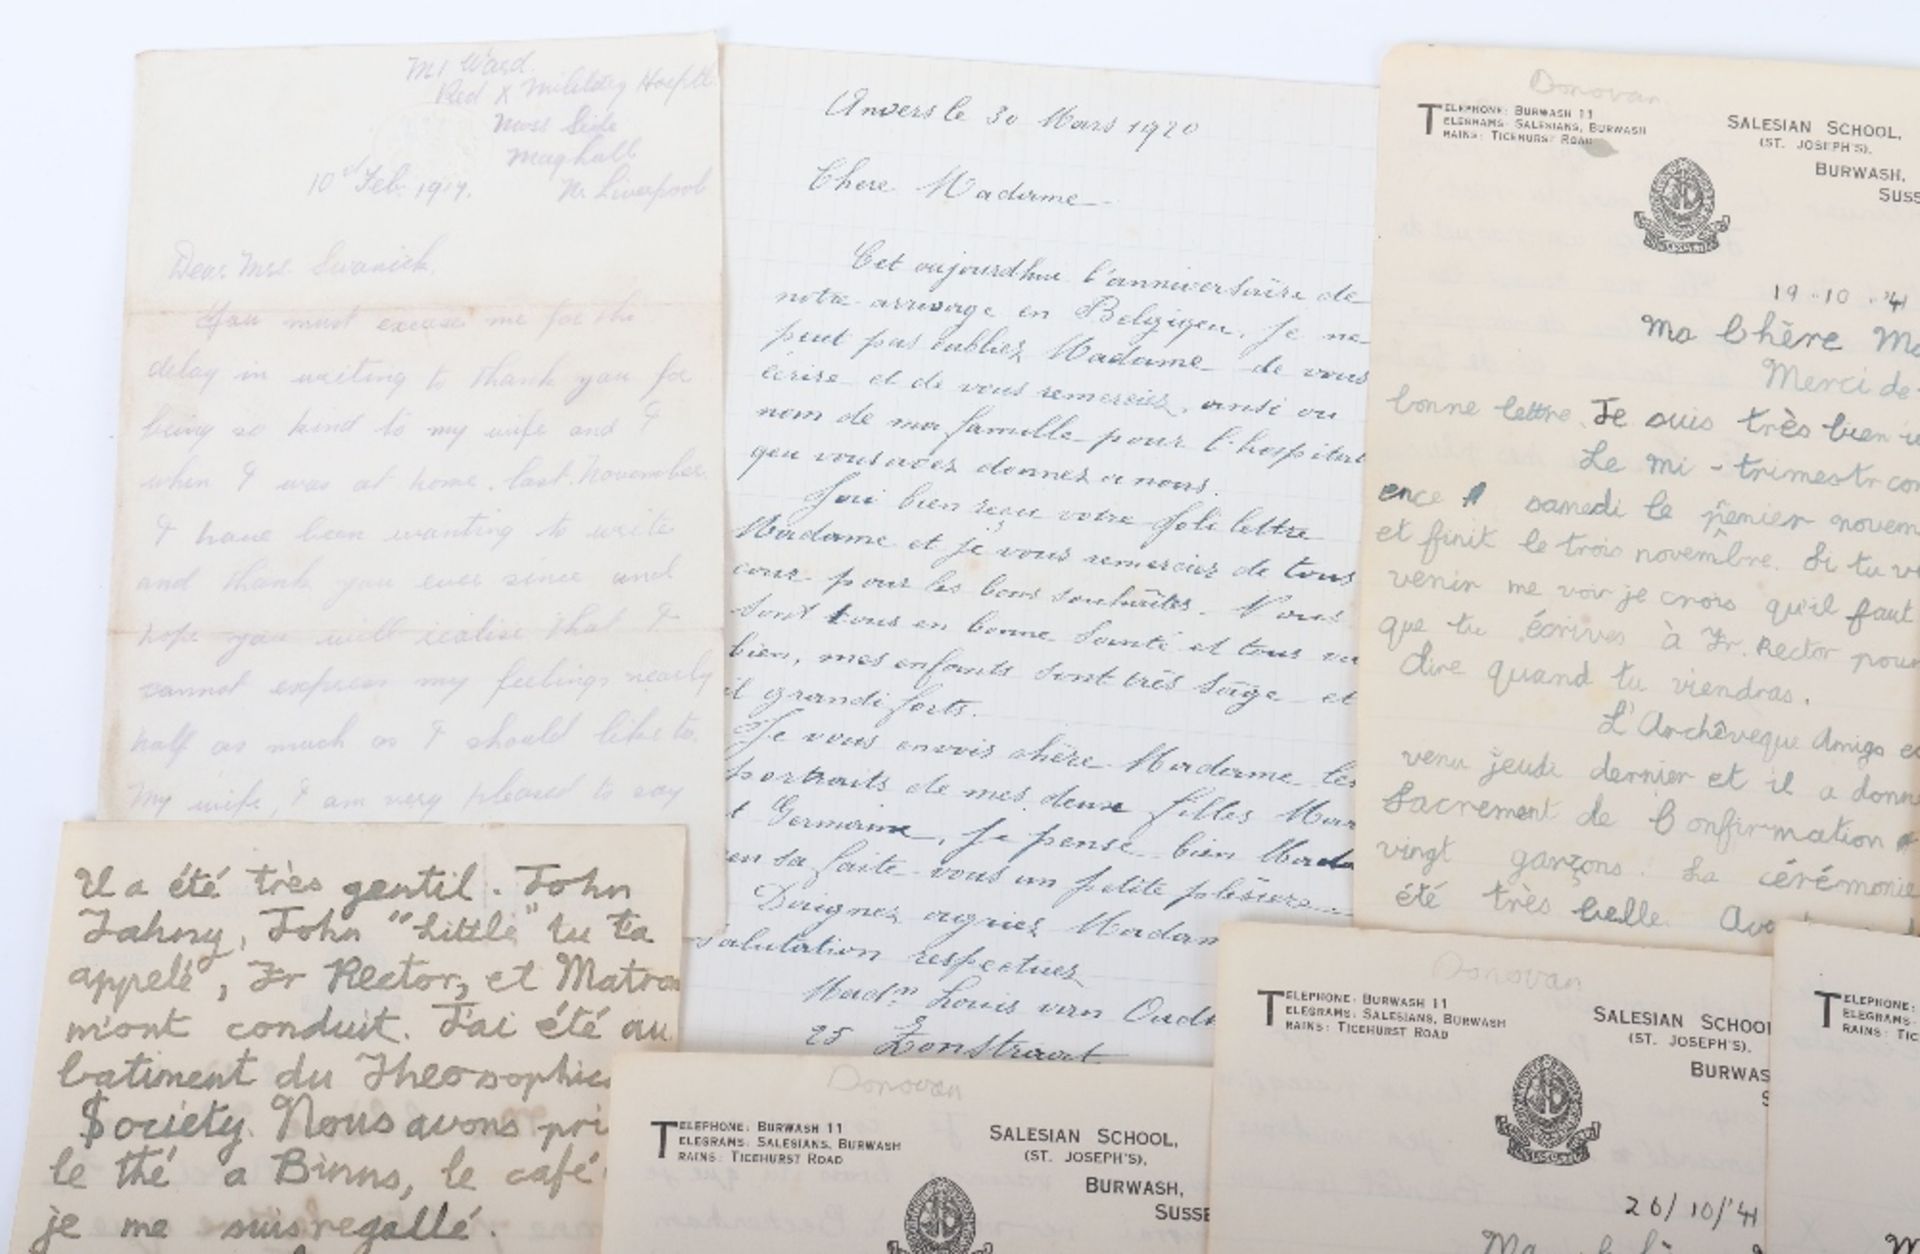 M1 Ward.
Red X Military Hosptl
Moss Side
Maghull
Nr Liverpool
10th Feb. 1917.
Dear Mrs Swanick,
You must excuse me for the
delay in writing to thank you for
being so kind to my wife and I
when I was at home. last. November.
I have been wanting to write
and thank you ever since and
hope you will realise that I
cannot express my feelings nearly
half as much as I should like to.
My wife, I am very pleased to say
Anvers le 30 Mars 1920
Chere Madame
Cet aujourdhui l'anniversaire de
notre arrivage en Belgigeu, Je ne
peut pas oublier Madame de vous
écrire et de vous remerciez, ansi au
nom de ma famille pour l'hospitat
qeu vous avez donnez a nous.
Jai bien reçu votre Joli lettre
Madame et je vous remerciez de tous
cour pour les bons souhaites. Nous
sont tous en bonne Santé et tous va
bien, mes enfants sont très sâge et
il grandi forts.
Je vous envois chère Madame les
portraits de mes deux filles Mar
t Germaine, Je pense bien Mada
en sa faite vous un petite plésiere
Daignez agriez Madam
salutation respectuez
Madn Louis van Oud
25 Zonstraat
Donovan
TELEPHONE: BURWASH 11
TELEGRAMS: SALESIANS, BURWASH
TRAINS: TICEHURST ROAD
SALESIAN SCHOOL,
(ST. JOSEPH'S),
BURWASH,
SUSS
19-10-'41
Ma Chère Ma
Merci de
bonne lettre. Je suis très bien i
Le mi-trimestr com
ence samedi le premier novem
et finit le trois novembre. Si tu ve
venir me voir je crois qu'il faut
que tu écrives à Fr. Rector pour
dire quand tu viendras.
L'Archêveque Amigo e
venu jeudi dernier et il a donn
Sacrement de Confirmation
vingt garçons. La cérémonie
été très belle. Ava
il a été très gentil. John
Fahny, John "Little" tu ta
appelé, Fr Rector, et Matron
m'ont conduit. J'ai été au
batiment du Theosophic
Society. Nous avons pri
le thé a Binns, le café
je me suis regallé.
Donovan
TELEPHONE: BURWASH 11
TELEGRAMS: SALESIANS, BURWASH
TRAINS: TICEHURST ROAD
SALESIAN SCHOOL,
(ST. JOSEPH'S),
BURWASH,
SUSSE
Donovan
TELEPHONE: BURWASH 11
TELEGRAMS: SALESIANS, BURWASH
TRAINS: TICEHURST ROAD
SALESIAN SCHOOL
(ST. JOSEPH'S),
BURWAS
S
26/10/'41
TELEPHONE:
TELEGRAMS
TRAINS: TIC